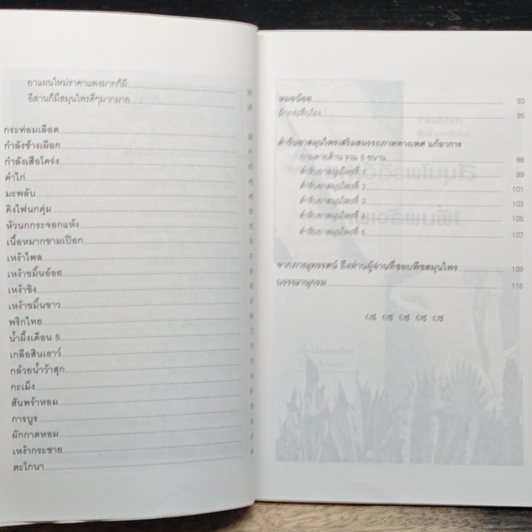 ยาแผนใหม่ราคาแพงมากก็มี
อีสานก็มีสมุนไพรดีๆมากมาย
กระท่อมเลือด
กำลังช้างเผือก
กำลังเสือโคร่ง
คำไก่
มะพลับ
คิงไฟนกคุ่ม
หัวนกกระจอกแห้ง
เนื้อหมากขามเปียก
เหง้าไพล
เหง้าขมิ้นอ้อย
เหง้าขิง
เหง้าขมิ้นขาว
พริกไทย
น้ำผึ้งเดือน 5
เกลือสินเธาว์
กล้วยน้ำว้าสุก
กะเม็ง
สันพร้าหอม
การบูร
ผักกาดหอม
เหง้ากระชาย
ตะโกนา
หมอน้อย 93
95
ตำรับยาสมุนไพรเสริมสมรรถภาพทางเพศ แก้อาการ
กามตายด้าน รวม 5 ขนาน 98
ตำรับยาสมุนไพรที่ 1 99
ตำรับยาสมุนไพรที่ 2 101
ตำรับยาสมุนไพรที่ 3 103
ตำรับยาสมุนไพรที่ 4 105
ตำรับยาสมุนไพรที่ 5 107
จากภาณุทรรศน์ ถึงท่านผู้อ่านที่ชอบพืชสมุนไพร 109
บรรณานุกรม 116